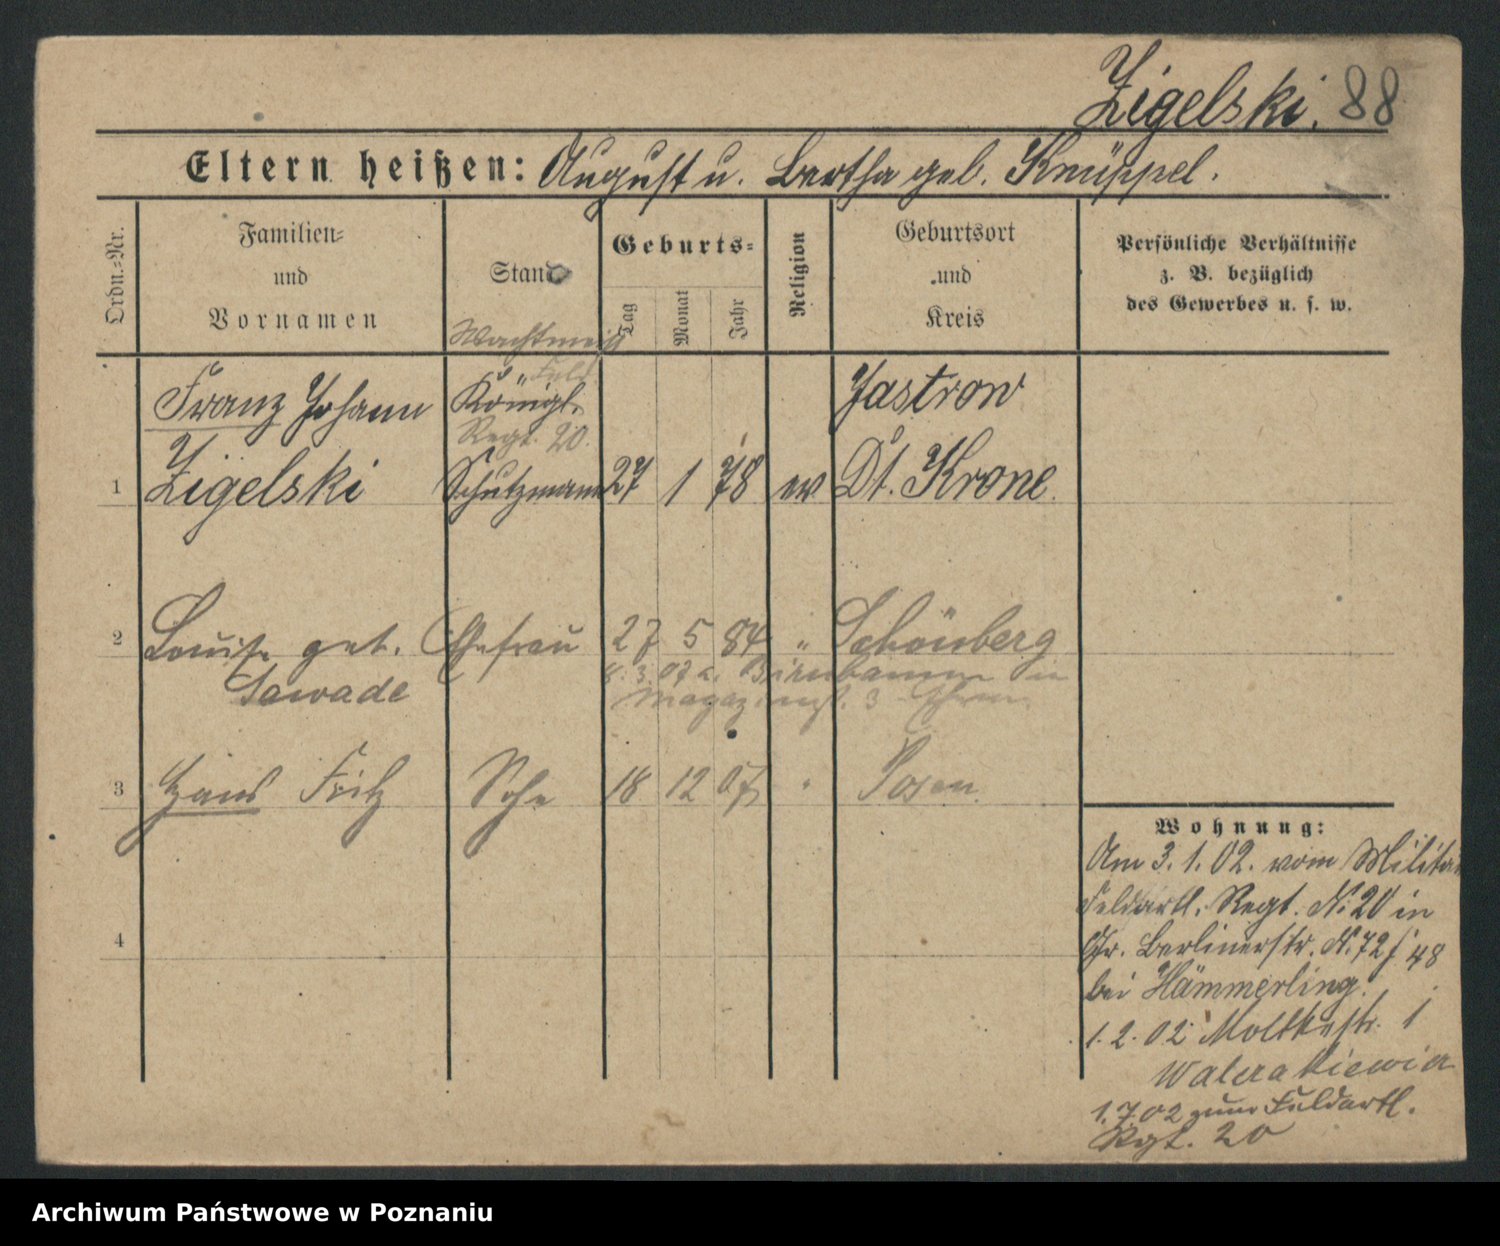 Zigelski. 88
Eltern heißen: August u. Bertha geb. Knüppel.
Ordn.-Nr.
Familien-
und
Vornamen
Stand
Geburts-
Tag
Monat
Jahr
Religion
Geburtsort
und
Kreis
Persönliche Verhältnisse
z. B. bezüglich
des Gewerbes u. s. w.
Wachtmeist
Feld
Franz Johann Königl. Jastrow
Regt. 20.
1 Zigelski Schutzmann 27 1 78 ev Dt. Krone.
2 Louise geb. Ehefrau 27 5 84 " Schönberg
Sawade
3. 07 Birnbaum in
Magazinst. 3
3 Hans Fritz Sohn 18 12 07 " Posen.
4
Wohnung:
Am 3.1.02. vom Militär
Feldartl. Regt. N. 20 in
Gr. Berlinerstr. N. 72 48
bei Hämmerling.
1.2.02 Moltkestr. 1
1.7.02 zum Feldartl.
Rgt. 20
Archiwum Państwowe w Poznaniu